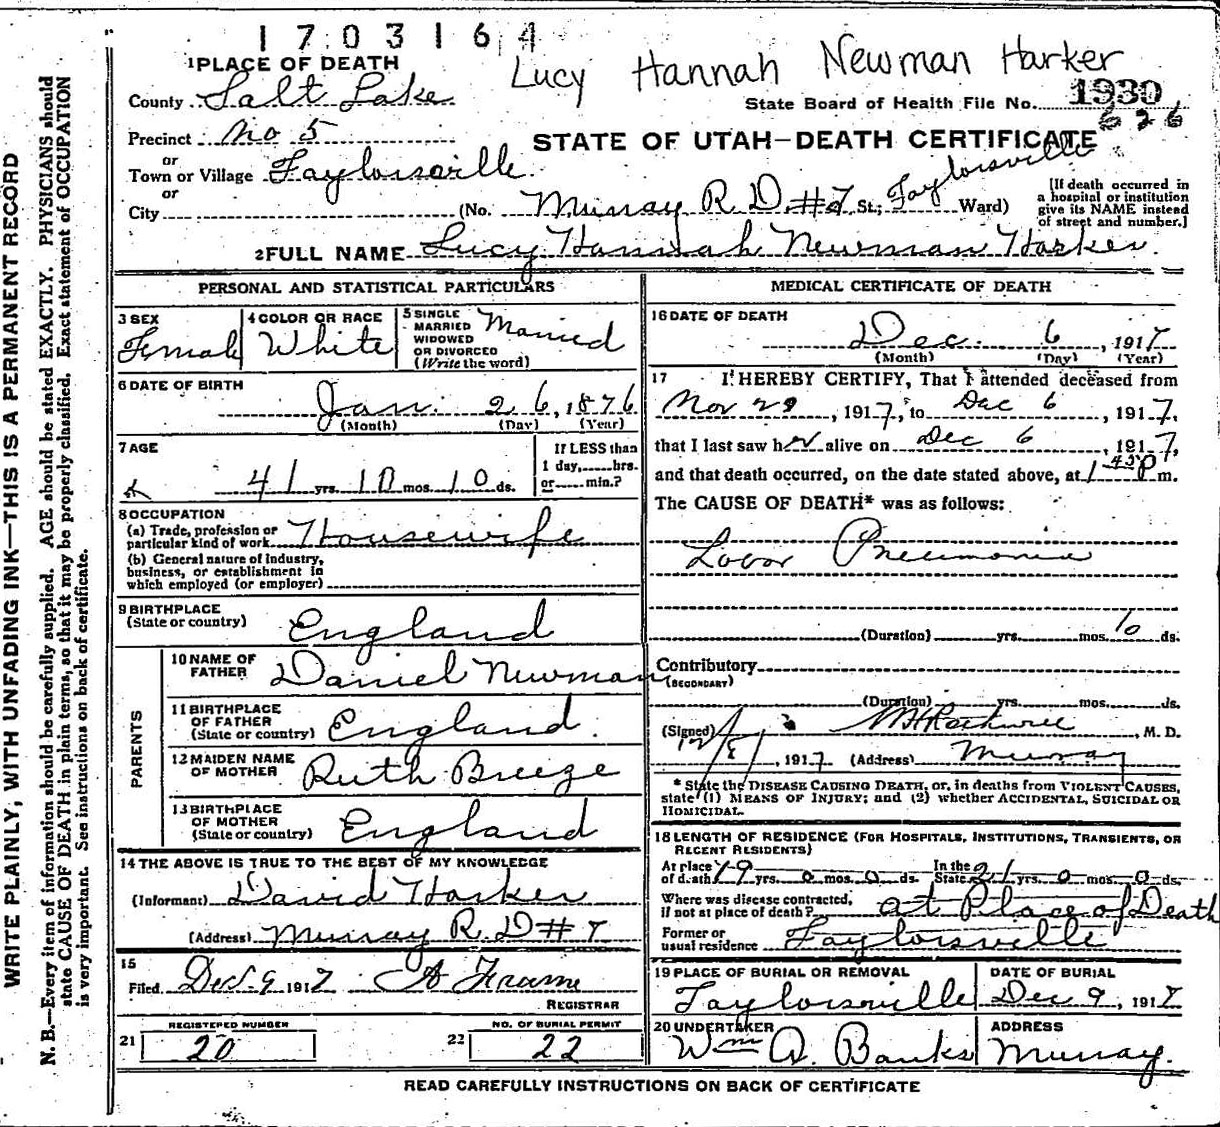 1703164
Lucy Hannah Newman Harker
1 PLACE OF DEATH
County Salt Lake
State Board of Health File No. 1930
626
Precinct No 5
STATE OF UTAH—DEATH CERTIFICATE
or
Town or Village Taylorsville
or
City (No. Murray R.D. #7 St; Taylorsville Ward)
[If death occurred in a hospital or institution give its NAME instead of street and number.]
2 FULL NAME Lucy Hannah Newman Harker
PERSONAL AND STATISTICAL PARTICULARS
3 SEX Female
4 COLOR OR RACE White
5 SINGLE MARRIED WIDOWED OR DIVORCED (Write the word) Married
6 DATE OF BIRTH
Jan. 26, 1876
(Month) (Day) (Year)
7 AGE
41 yrs. 10 mos. 10 ds.
If LESS than
1 day, hrs.
or min.?
8 OCCUPATION
(a) Trade, profession or
particular kind of work Housewife
(b) General nature of industry,
business, or establishment in
which employed (or employer)
9 BIRTHPLACE
(State or country) England
PARENTS
10 NAME OF FATHER Daniel Newman
11 BIRTHPLACE OF FATHER (State or country) England.
12 MAIDEN NAME OF MOTHER Ruth Breeze
13 BIRTHPLACE OF MOTHER (State or country) England
14 THE ABOVE IS TRUE TO THE BEST OF MY KNOWLEDGE
(Informant) David Harker
(Address) Murray R.D #7
15
Filed Dec 9 1917
REGISTRAR
REGISTERED NUMBER
21 20
NO. OF BURIAL PERMIT
22 22
MEDICAL CERTIFICATE OF DEATH
16 DATE OF DEATH
Dec. 6, 1917
(Month) (Day) (Year)
17 I HEREBY CERTIFY, That I attended deceased from
Nov 29, 1917, to Dec 6, 1917,
that I last saw her alive on Dec 6, 1917,
and that death occurred, on the date stated above, at 1 45 P m.
The CAUSE OF DEATH* was as follows:
Lobar Pneumonia
(Duration) yrs. mos. 10 ds.
Contributory
(SECONDARY)
(Duration) yrs. mos. ds.
(Signed) , M. D.
12/8/, 1917 (Address) Murray
* State the DISEASE CAUSING DEATH, or, in deaths from VIOLENT CAUSES,
state (1) MEANS OF INJURY; and (2) whether ACCIDENTAL, SUICIDAL OR
HOMICIDAL.
18 LENGTH OF RESIDENCE (FOR HOSPITALS, INSTITUTIONS, TRANSIENTS, OR
RECENT RESIDENTS)
At place of death 19 yrs. 0 mos. 0 ds. In the State 21 yrs. 0 mos. 0 ds.
Where was disease contracted,
if not at place of death? at Place of Death
Former or
usual residence Taylorsville
19 PLACE OF BURIAL OR REMOVAL
Taylorsville
DATE OF BURIAL
Dec 9, 1917
20 UNDERTAKER
Wm D. Banks
ADDRESS
Murray.
READ CAREFULLY INSTRUCTIONS ON BACK OF CERTIFICATE
WRITE PLAINLY, WITH UNFADING INK—THIS IS A PERMANENT RECORD
N. B.—Every item of information should be carefully supplied. AGE should be stated EXACTLY. PHYSICIANS should
state CAUSE OF DEATH in plain terms, so that it may be properly classified. Exact statement of OCCUPATION
is very important. See instructions on back of certificate.